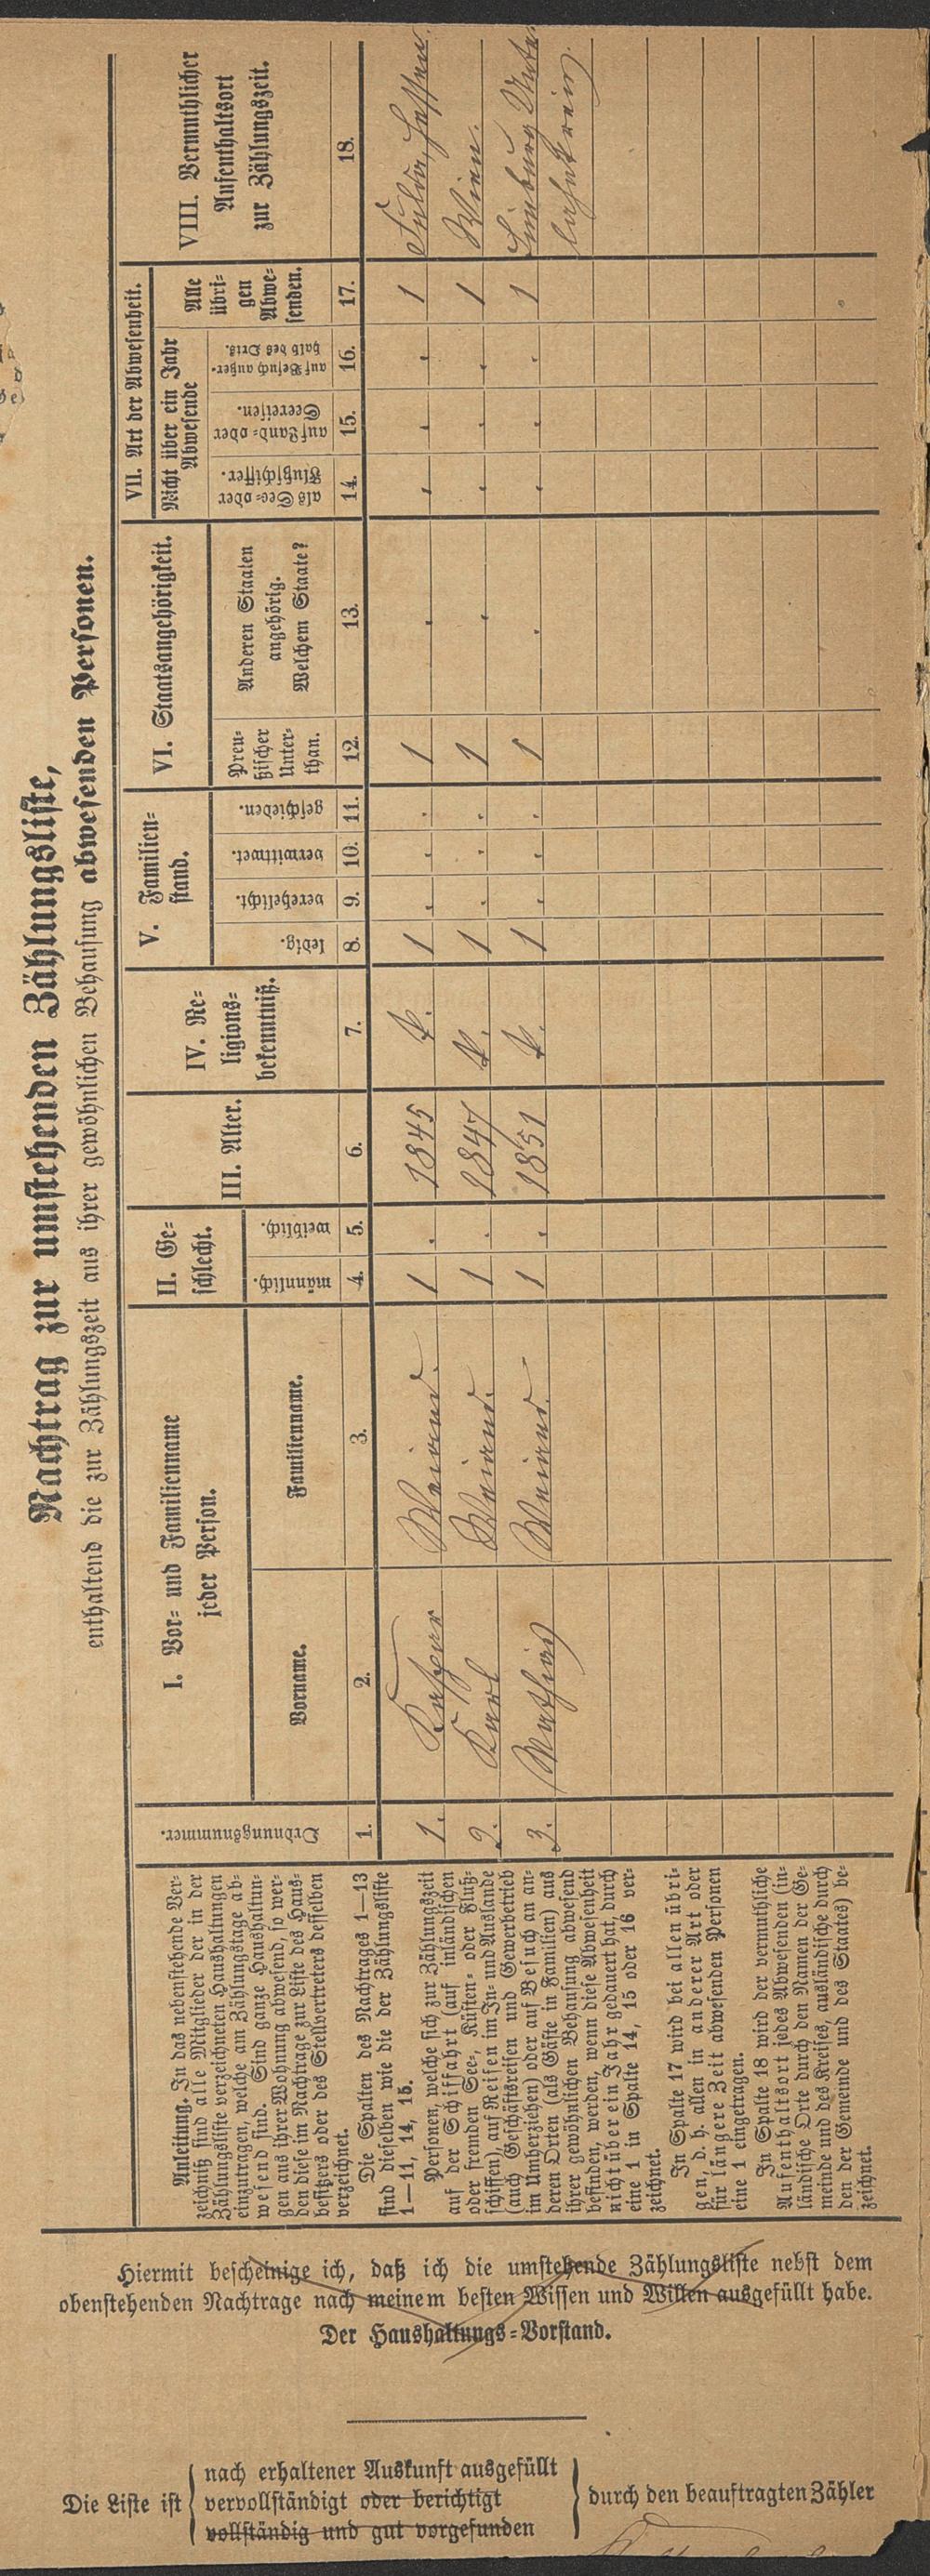 Nachtrag zur umstehenden Zählungsliste,
enthaltend die zur Zählungszeit aus ihrer gewöhnlichen Behausung abwesenden Personen.
Anleitung. In das nebenstehende Ver-
zeichniß sind alle Mitglieder der in der
Zählungsliste verzeichneten Haushaltungen
einzutragen, welche am Zählungstage ab-
wesend sind. Sind ganze Haushaltun-
gen aus ihrer Wohnung abwesend, so wer-
den diese im Nachtrage zur Liste des Haus-
besitzers oder des Stellvertreters desselben
verzeichnet.
Die Spalten des Nachtrages 1—13
sind dieselben wie die der Zählungsliste
1—11, 14, 15.
Personen, welche sich zur Zählungszeit
auf der Schiffahrt (auf inländischen
oder fremden See-, Küsten- oder Fluß-
schiffen), auf Reisen im In- und Auslande
(auch Geschäftsreisen und Gewerbetrieb
im Umherziehen) oder auf Besuch an an-
deren Orten (als Gäste in Familien) aus
ihrer gewöhnlichen Behausung abwesend
befinden, werden, wenn diese Abwesenheit
nicht über ein Jahr gedauert hat, durch
eine 1 in Spalte 14, 15 oder 16 ver-
zeichnet.
In Spalte 17 wird bei allen übri-
gen, d. h. allen in anderer Art oder
für längere Zeit abwesenden Personen
eine 1 eingetragen.
In Spalte 18 wird der vermuthliche
Aufenthaltsort jedes Abwesenden (in-
ländische Orte durch den Namen der Ge-
meinde und des Kreises, ausländische durch
den der Gemeinde und des Staates) be-
zeichnet.
Ordnungsnummer.
I. Vor- und Familienname
jeder Person.
Vorname.
Familienname.
II. Ge-
schlecht.
männlich.
weiblich.
III. Alter.
IV. Re-
ligions-
bekenntniß.
V. Familien-
stand.
ledig.
verehelicht.
verwittwet.
geschieden.
VI. Staatsangehörigkeit.
Preu-
ßischer
Unter-
than.
Anderen Staaten
angehörig.
Welchem Staate?
VII. Art der Abwesenheit.
Nicht über ein Jahr
Abwesende
als See- oder
Flußschiffer.
auf Land- oder
Seereisen.
auf Besuch außer-
halb des Orts.
Alle
übri-
gen
Abwe-
senden.
VIII. Vermuthlicher
Aufenthaltsort
zur Zählungszeit.
1. 2. 3. 4. 5. 6. 7. 8. 9. 10. 11. 12. 13. 14. 15. 16. 17. 18.
1. Kaspar Weiand. 1 . 1845 k. 1 . . . 1 . . . . 1 Fulda, Hessen.
2. Karl Weiand. 1 . 1847 k. 1 . . . 1 . . . . 1 Wien.
3. Mathias Weiand. 1 . 1851 k. 1 . . . 1 . . . . 1 Limburg Unter
lahnkreis
Hiermit bescheinige ich, daß ich die umstehende Zählungsliste nebst dem
obenstehenden Nachtrage nach meinem besten Wissen und Willen ausgefüllt habe.
Der Haushaltungs-Vorstand.
Die Liste ist
nach erhaltener Auskunft ausgefüllt
vervollständigt oder berichtigt
vollständig und gut vorgefunden
durch den beauftragten Zähler